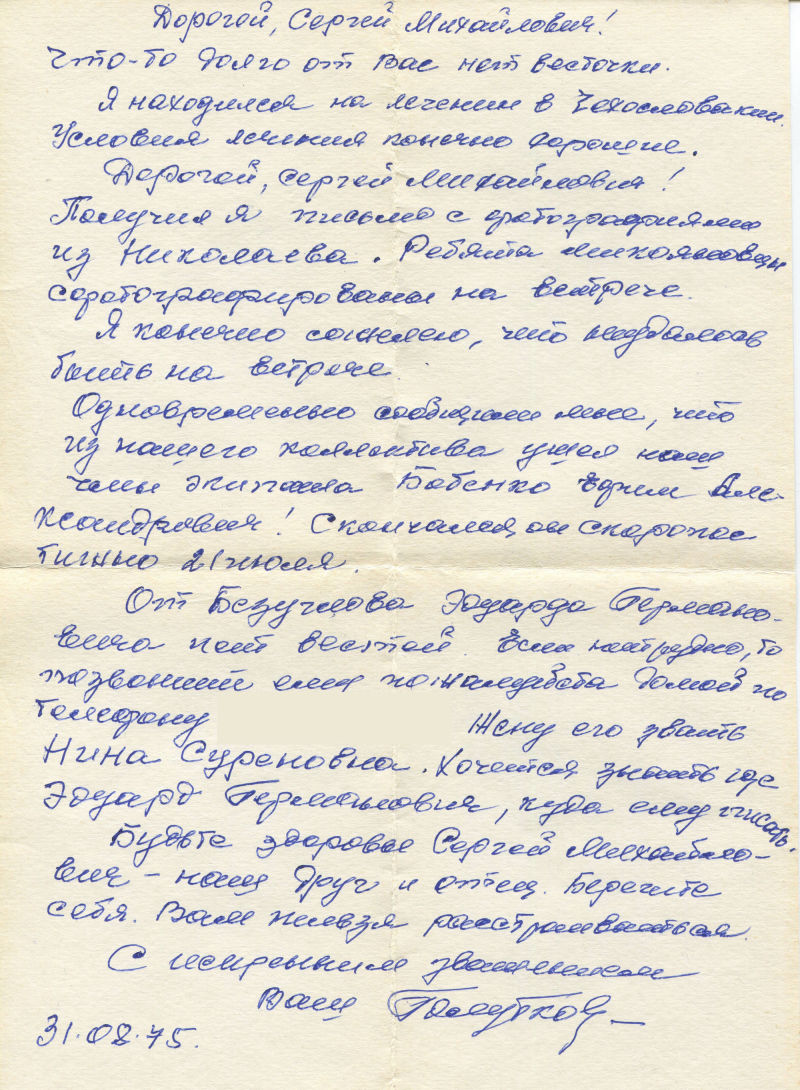 Дорогой, Сергей Михайлович!
Что-то долго от Вас нет весточки.
Я находился на лечении в Чехословакии.
Условия лечения конечно хорошие.
Дорогой, Сергей Михайлович!
Получил я письмо с фотографиями
из Николаева. Ребята микояновцы
сфотографированы на встрече.
Я конечно сожалею, что неудалось
быть на встрече
Одновременно сообщили мне, что
из нашего коллектива ушел наш
член экипажа Бабенко Ефим Але-
ксандрович! Скончался он скоропос
тижно 21 июля.
От Безуглова Эдуарда Германо-
вича нет вестей. Если нетрудно, то
позвоните ему пожалуйста домой по
телефону Жену его звать
Нина Суреновна. Хочется знать где
Эдуард Германович, куда ему писать.
Будьте здоровы Сергей Михайло-
вич - наш друг и отец. Берегите
себя. Вам нельзя расстраиваться.
С искренним уважением
Ваш
31.08.75.